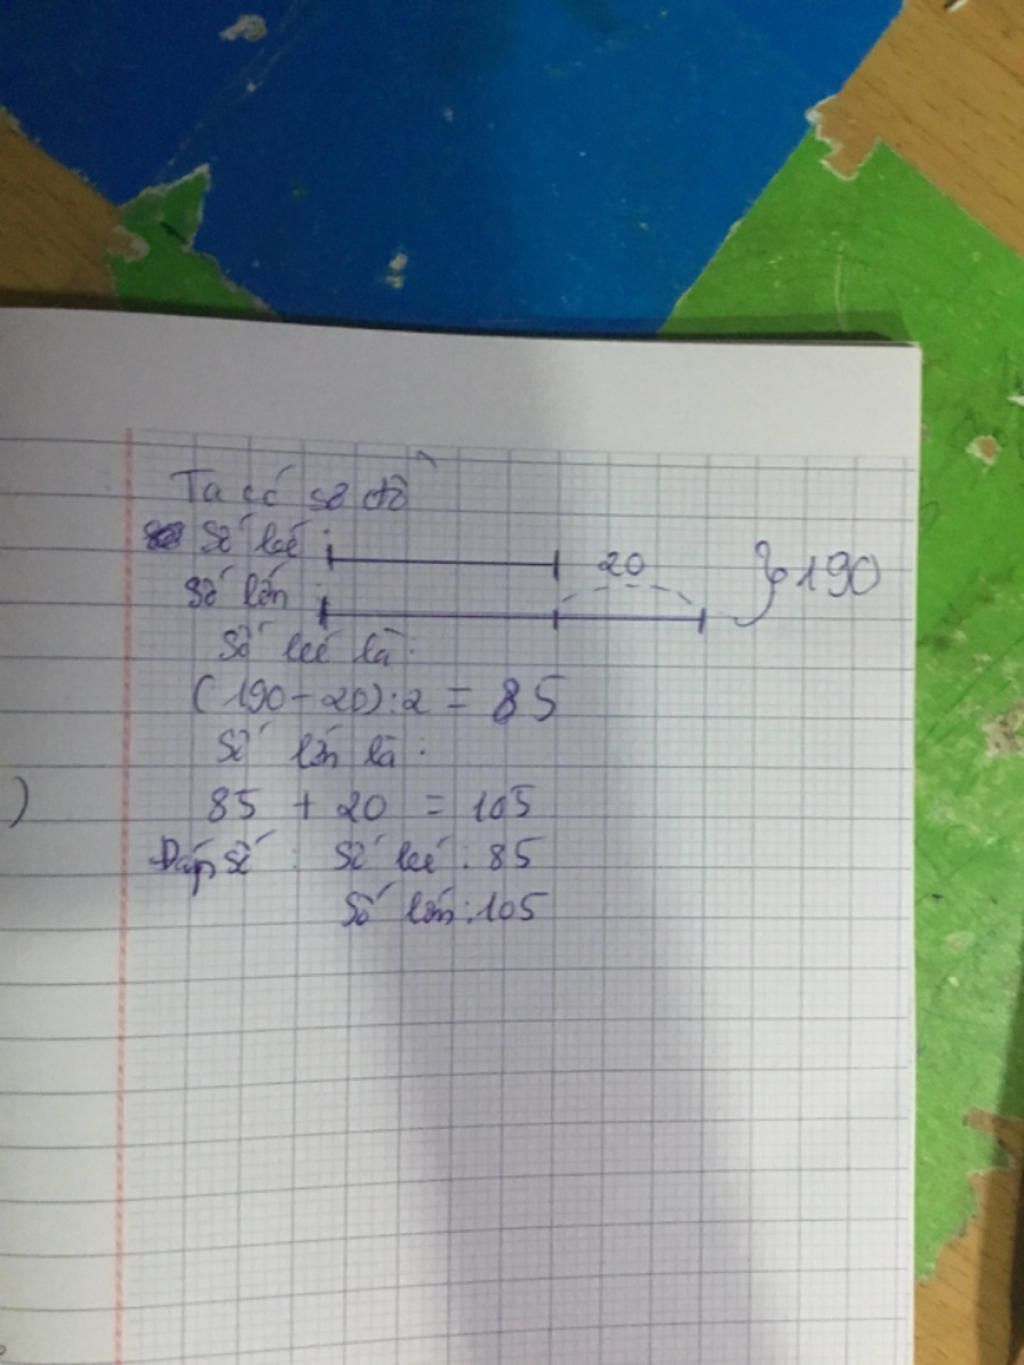 Ta có sơ đồ
Số bé :
20
190
Số lớn :
Số bé là :
(190 - 20) : 2 = 85
Số lớn là :
85 + 20 = 105
)
Đáp số : Số bé : 85
Số lớn : 105